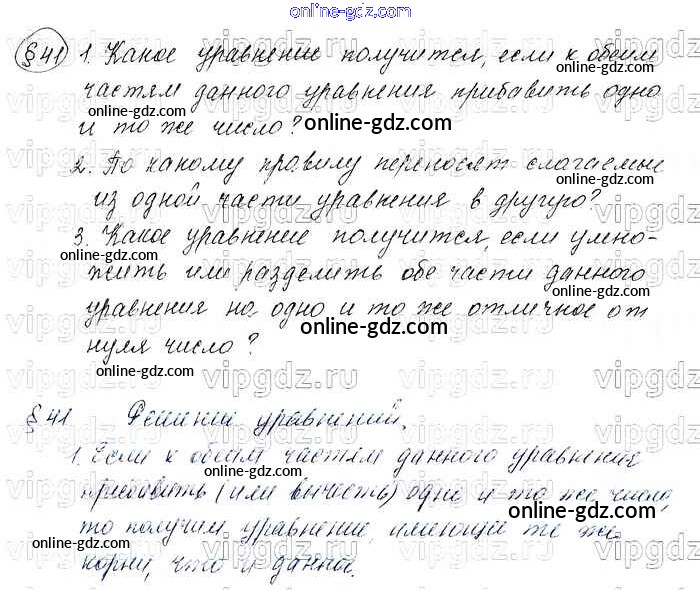 online-gdz.com
§ 41 1. Какое уравнение получится, если к обеим
частям данного уравнения прибавить одно
и то же число?
2. По какому правилу переносят слагаемые
из одной части уравнения в другую?
3. Какое уравнение получится, если умно-
жить или разделить обе части данного
уравнения на одно и то же отличное от
нуля число?
§ 41 Решение уравнений.
1. Если к обеим частям данного уравнения
прибавить (или вычесть) одно и то же число,
то получим уравнение, имеющее те же
корни, что и данное.
online-gdz.com
online-gdz.com
online-gdz.com
online-gdz.com
online-gdz.com
online-gdz.com
online-gdz.com
online-gdz.com
online-gdz.com
online-gdz.com
online-gdz.com
online-gdz.com
vipgdz.ru
vipgdz.ru
vipgdz.ru